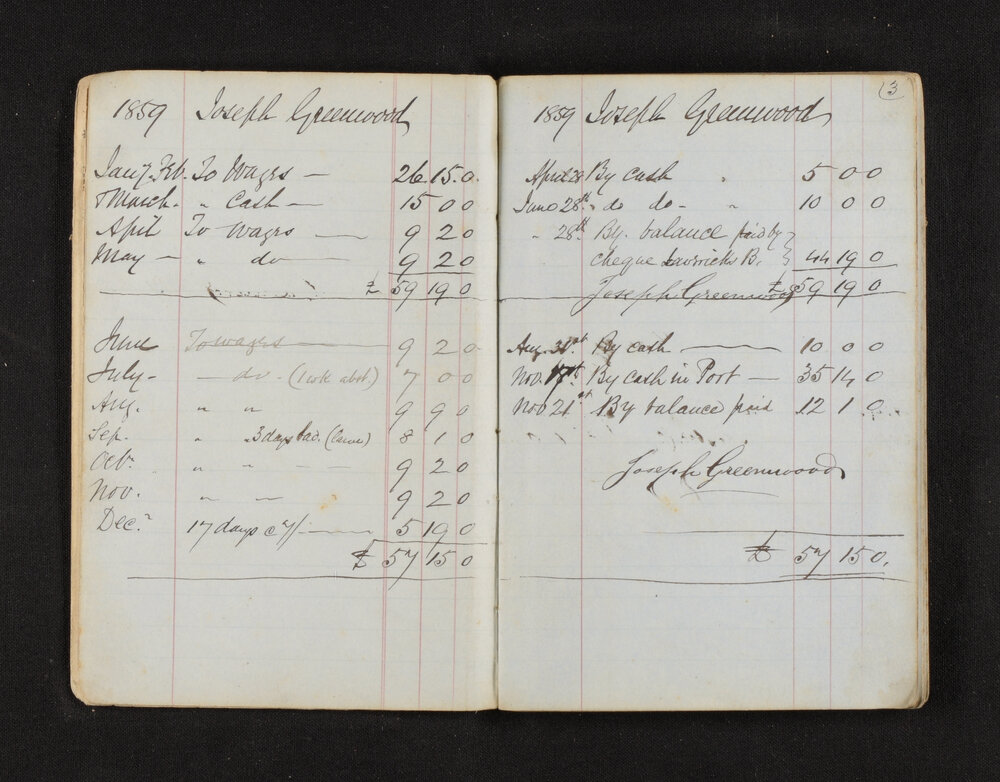 1859 Joseph Greenwood
Jany. Feb. To Wages — 26.15.0.
& March. " Cash — 15 0 0
April To Wages — 9 2 0
May — " do — 9 2 0
£ 59 19 0
June To wages — 9 2 0
July - — do - (1 wk abst.) 7 0 0
Aug. " " 9 9 0
Sep. " " 3 days bad. 8 1 0
Oct. " " — — 9 2 0
Nov. " " 9 2 0
Dec. 17 days @ 7/ — 5 19 0
£ 57 15 0
3
1859 Joseph Greenwood
April 28 By cash 5 0 0
June 28th " do do - " 10 0 0
" 28th By. balance paid by
cheque B. 44 19 0
Joseph Greenwood £ 59 19 0
Aug. 31st By cash — 10 0 0
Nov. 17th. By cash in Port — 35 14 0
Nov 21st By balance paid 12 1 0
Joseph Greenwood
£ 57 15 0.